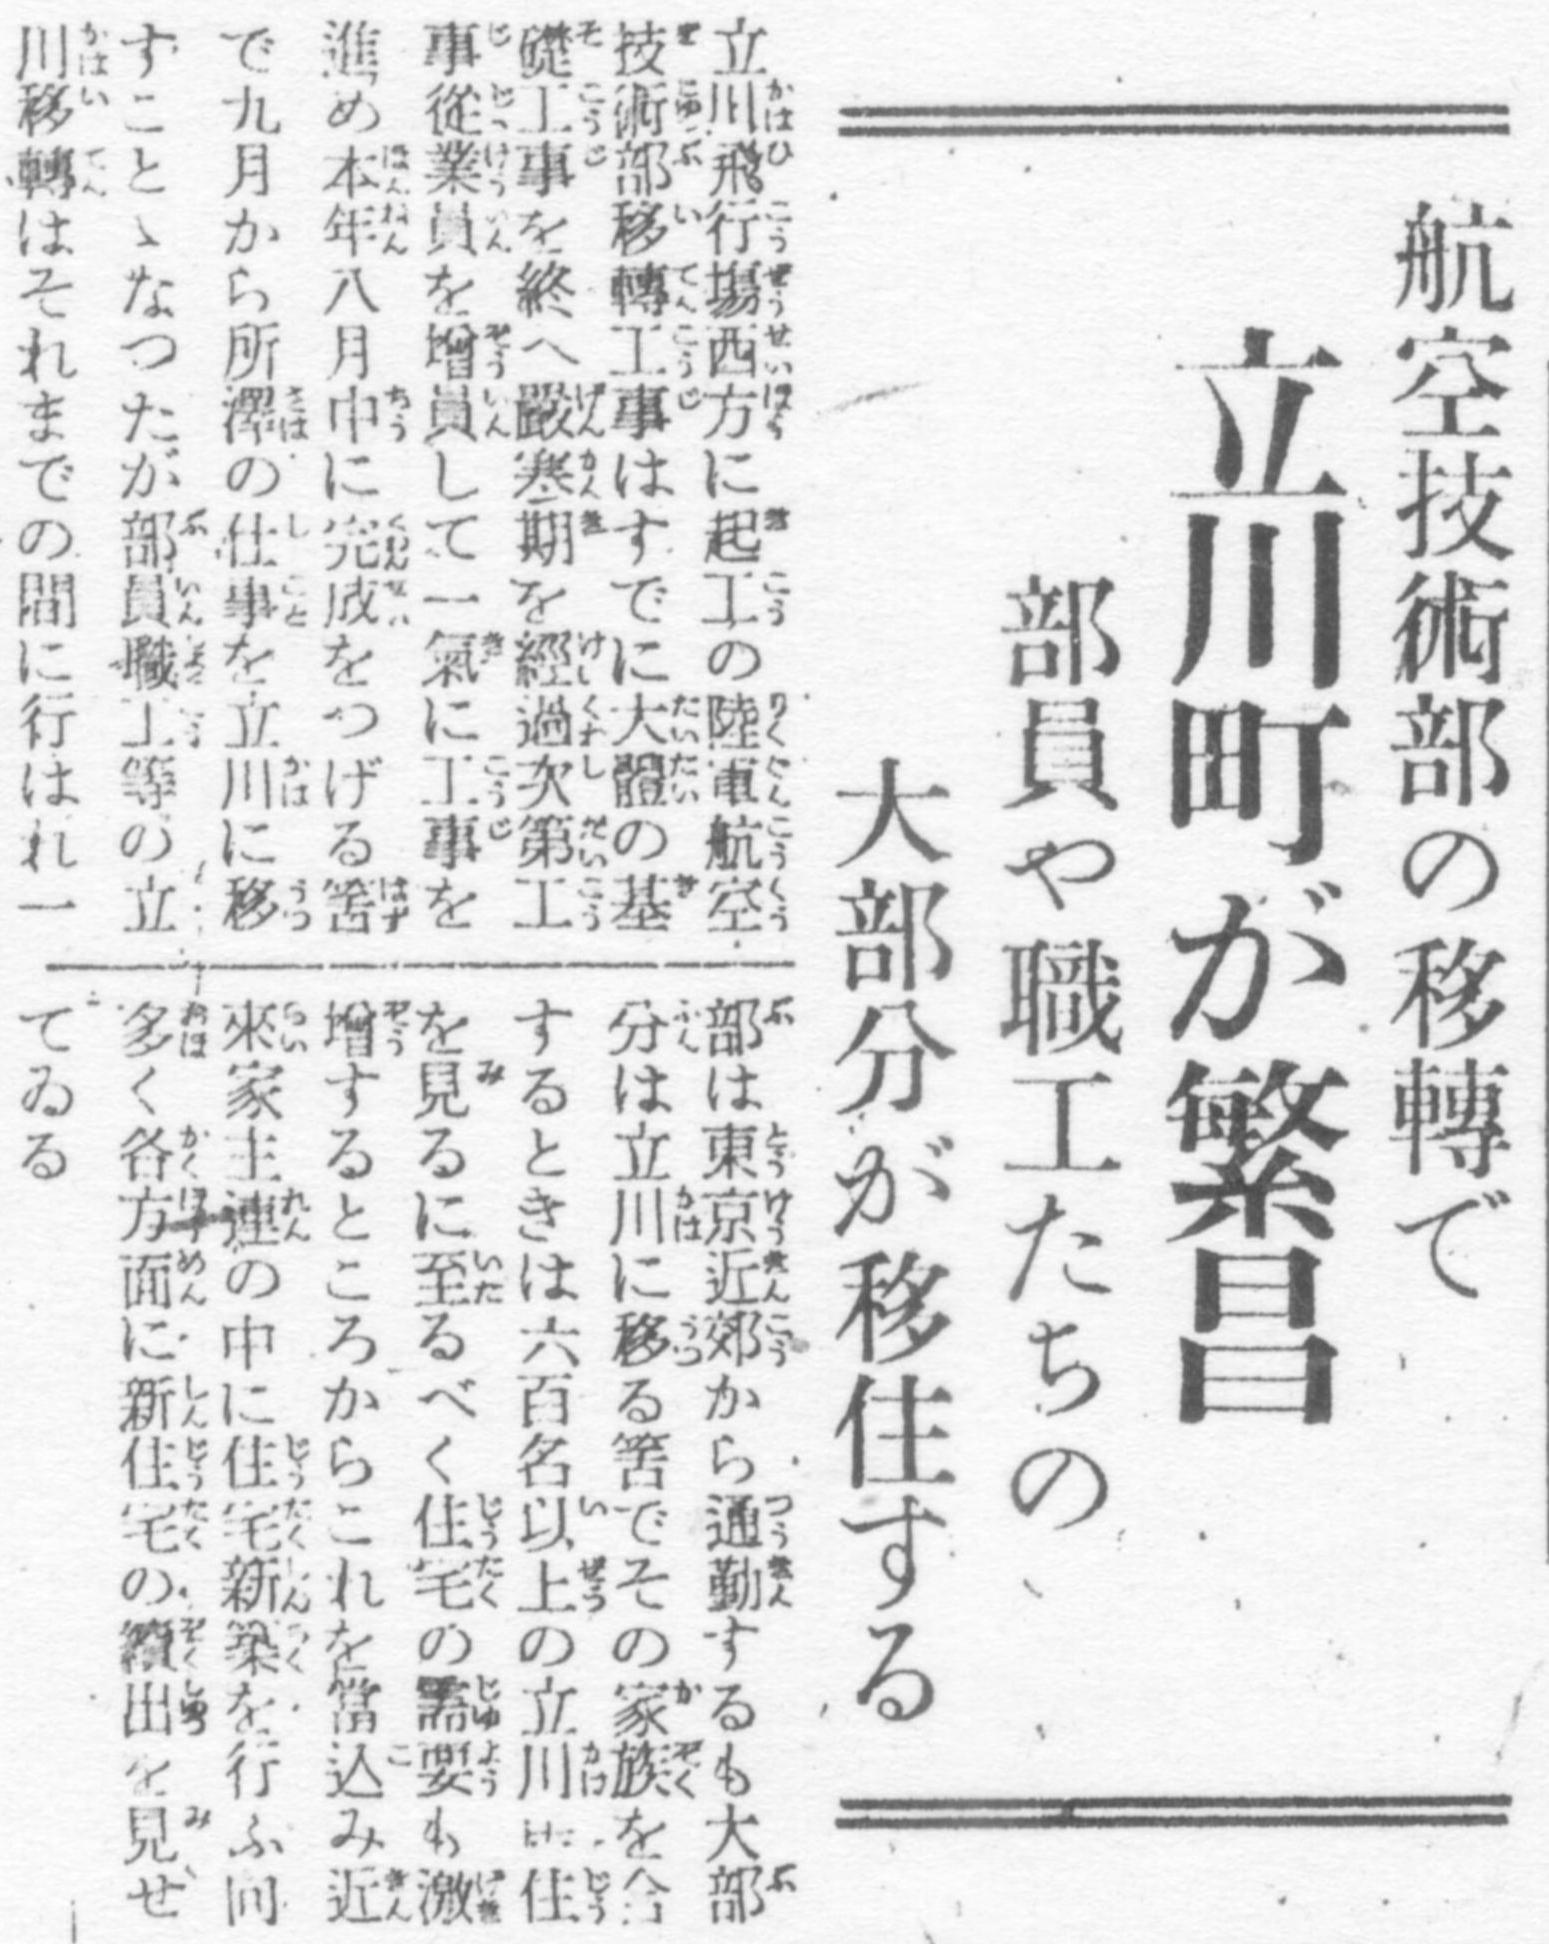 航空技術部の移轉で
立川町が繁昌
部員や職工たちの
大部分が移住する
立川飛行場西方に起工の陸軍航空
技術部移轉工事はすでに大體の基
礎工事を終へ嚴寒期を經過次第工
事從業員を增員して一氣に工事を
進め本年八月中に完成をつげる筈
で九月から所澤の仕事を立川に移
すことゝなつたが部員職工等の立
川移轉はそれまでの間に行はれ一
部は東京近郊から通勤するも大部
分は立川に移る筈でその家族を合
するときは六百名以上の立川 住
を見るに至るべく住宅の需要も激
增するところからこれを當込み近
來家主連の中に住宅新築を行ふ向
多く各方面に新住宅の續出を見せ
てゐる